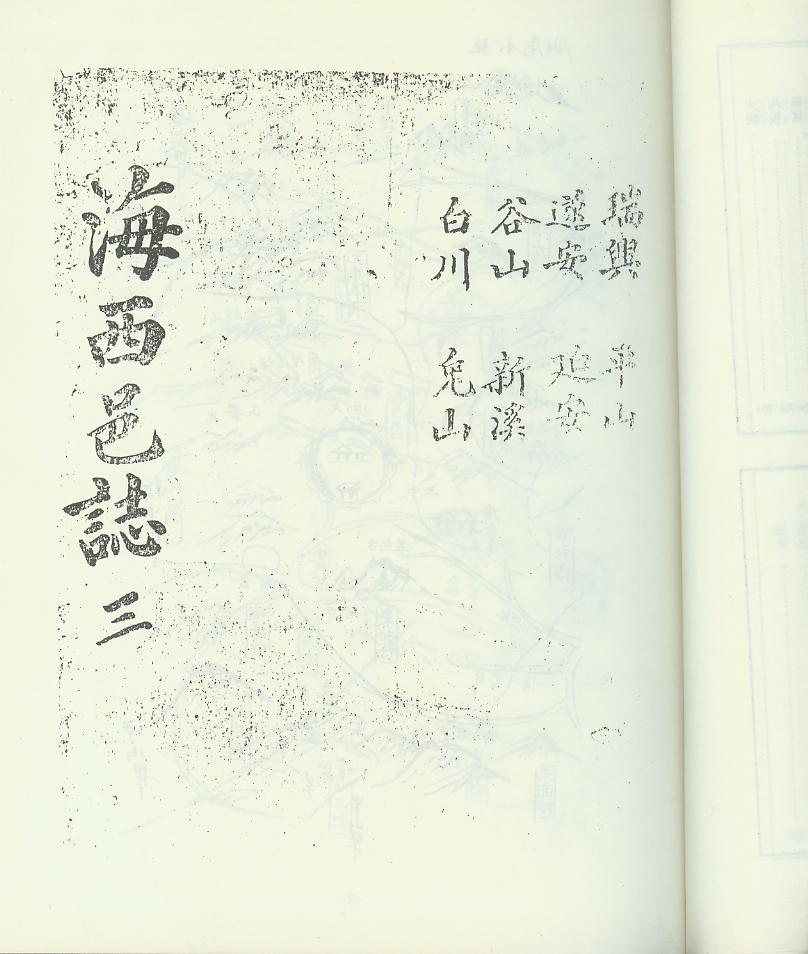 瑞興 平山
遂安 延安
谷山 新溪
白川 兔山
海西邑誌 三